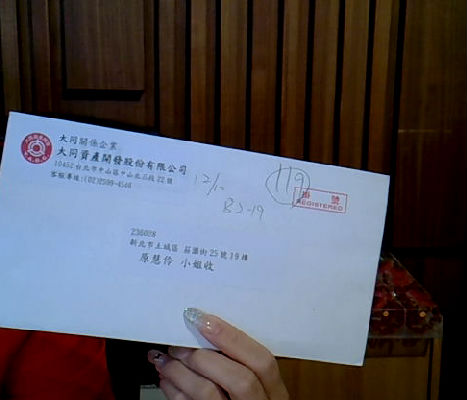 大同關係企業
大同資產開發股份有限公司
10452台北市中山區中山北路三段22號
客服專線:(02)2599-4568
12/10
119
掛號
REGISTERED
BJ-19
236028
新北市土城區 莊園街25號19樓
原慧伶 小姐收